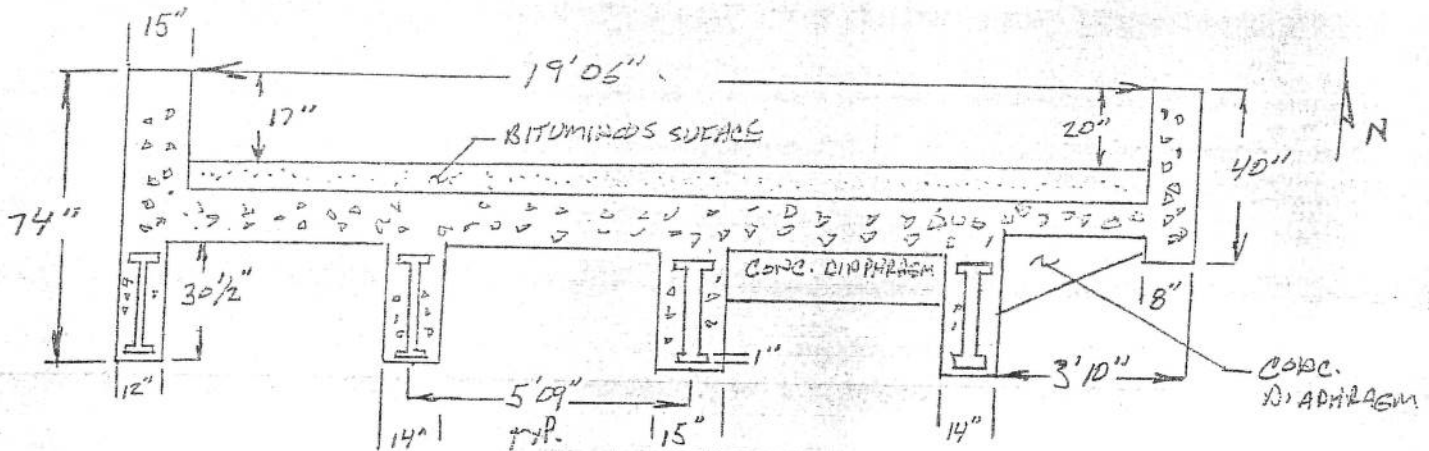 15"
19'06"
17"
BITUMINOUS SUFACE
20"
N
40"
74"
30 1/2"
CONC. DIAPHRAGM
8"
1"
3'10"
CONC.
DIAPHRAGM
12"
5'09"
TYP.
14"
15"
14"